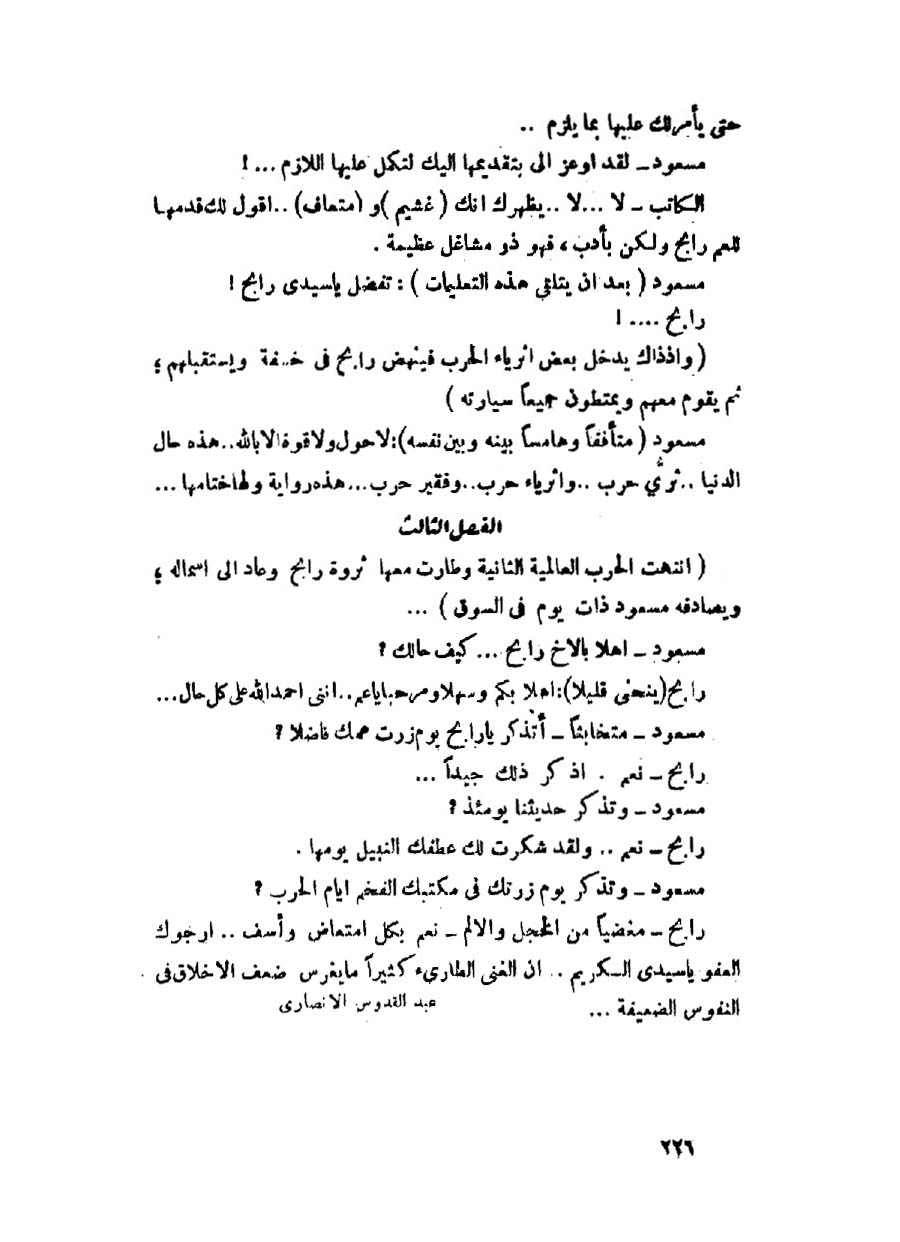 حتى يأمرلك عليها بما يلزم ..
مسعود ـ لقد اوعز الى بتقديمها اليك لتكمل عليها اللازم ... !
الكاتب ـ لا ... لا .. يظهرك انك ( غشيم ) و ( متعاف ) .. اقول لك قدمها
للعم رابح ولكن بأدب ، فهو ذو مشاغل عظيمة .
مسعود ( بعد ان يتلقى هذه التعليات ) : تفضل ياسيدى رابح !
رابح .... !
( واذذاك يدخل بعض اثرياء الحرب فينهض رابح فى خفة ويستقبلهم ؛
ثم يقوم معهم ويمتطون جميعاً سيارته )
مسعود ( متأففاً وهامساً بينه وبين نفسه ) : لاحول ولاقوة الا بالله .. هذه حال
الدنيا .. ثرىُّ حرب .. واثرياء حرب .. وفقير حرب ... هذه رواية ولها ختامها ...
الفصل الثالث
( انتهت الحرب العالمية الثانية وطارت معها ثروة رابح وعاد الى اسماله ؛
ويصادفه مسعود ذات يوم فى السوق ) ...
مسعود ـ اهلا بالاخ رابح ... كيف حالك ؟
رابح ( ينحنى قليلا ) : اهلا بكم وسهلا ومرحبا ياعم .. اننى احمد الله على كل حال ...
مسعود ـ متخابثاً ـ أتذكر يارابح يوم زرت عمك فاضلا ؟
رابح ـ نعم . اذكر ذلك جيداً ...
مسعود ـ وتذكر حديثنا يومئذ ؟
رابح ـ نعم .. ولقد شكرت لك عطفك النبيل يومها .
مسعود ـ وتذكر يوم زرتك فى مكتبك الفخم ايام الحرب ؟
رابح ـ مغضياً من الخجل والالم ـ نعم بكل امتعاض وأسف .. ارجوك
العفو ياسيدى الكريم .. ان الغنى الطارىء كثيراً مايغرس ضعف الاخلاق فى
النفوس الضعيفة ...
عبد القدوس الانصارى
٢٢٦